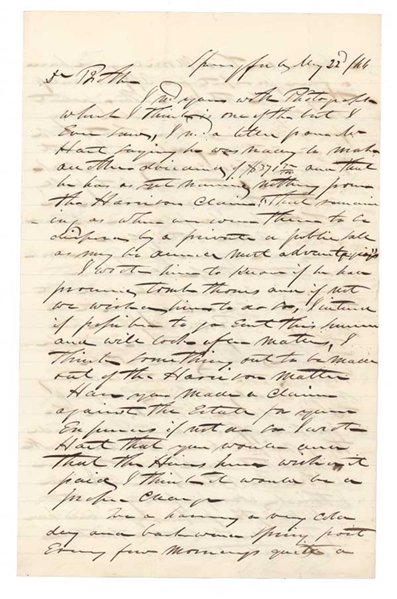 May 22d /66
Dr Bro
I recd yours with Photograph
which I think is one of the best I
Ever saw, I recd a letter from
Hart saying he was ready to make
another dividend of and that
he has as yet nothing from
the Harrison Claim & that remain
ing as when we were there to be
disposed by a private or public sale
as may be most advantageous
I wrote him to know if he has
procured tomb stones and if not
we wish him to do so, I intend
if possible to go East this summer
and will look after matters, I
think something out to be made
out of the Harrison matter
Have you made a Claim
against the Estate for your
Expenses if not do so I wrote
Hart that you would and
that the Heirs here wish it
paid, I think it would be a
proper Charge
We a having a very cold
day and backward Spring frost
Every few Mornings quite a